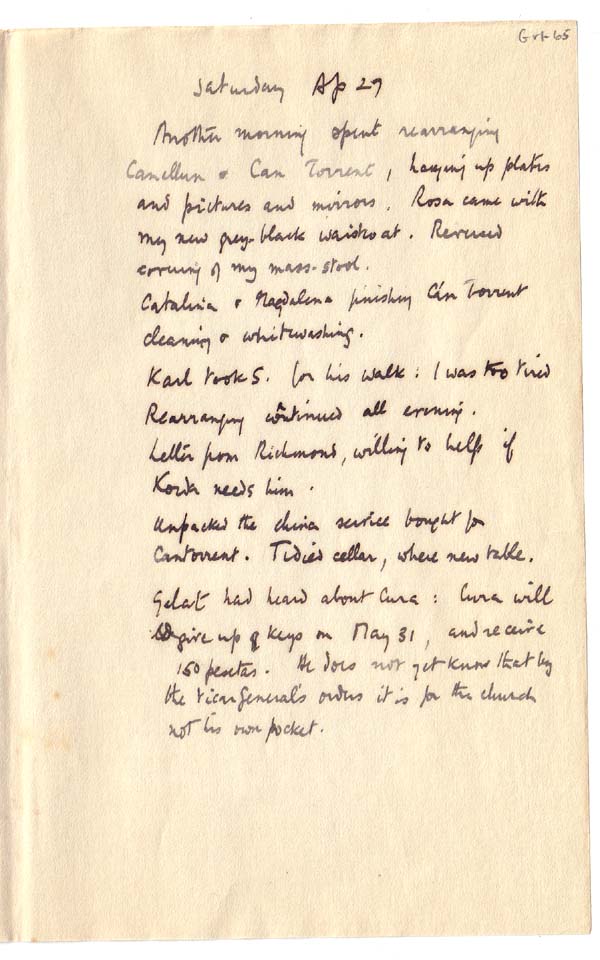 Grt-65
Saturday Ap 27
Another morning spent rearranging
Canellun & Can Torrent, hanging up plates
and pictures and mirrors. Rosa came with
my new grey-black waistcoat. Renewed
covering of my mass-stool.
Catalina & Magdalena finishing Can Torrent
cleaning & whitewashing.
Karl took S. for his walk: I was too tired
Rearranging continued all evening.
Letter from Richmond, willing to help if
Korda needs him.
Unpacked the china service bought for
Cantorrent. Tidied cellar, where new table.
Gelat had heard about Cura: Cura will
give up keys on May 31, and receive
150 pesetas. He does not yet know that by
the Vicar General's orders it is for the church
not his own pocket.